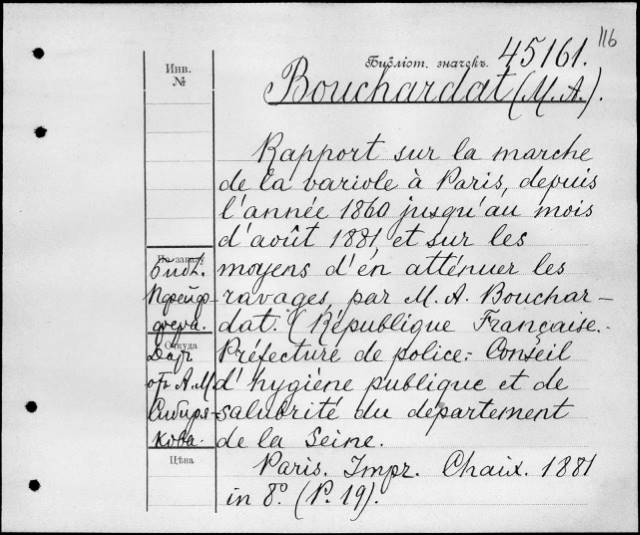 116
Библіот. значекъ. 45161.
Инв.
№
Bouchardat (M. A.).
Rapport sur la marche
de la variole à Paris, depuis
l'année 1860 jusqu'au mois
d'août 1881, et sur les
moyens d'én atténuer les
ravages, par M. A. Bouchar-
dat. (République Française.-
Préfecture de police: Conseil
d'hygiène publique et de
salubrité du département
de la Seine.
Paris. Impr. Chaix. 1881
in 8.º (P. 19).
Библ.
Пфейф-
фера.
Откуда
Даръ
отъ А. М.
Сибиря-
кова.
Цѣна